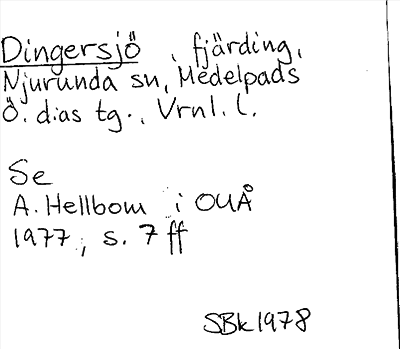 Dingersjö, fjärding,
Njurunda sn, Medelpads
Ö. d:as tg., Vrnl. l.
Se
A. Hellbom i OUÅ
1977, s. 7 ff
SBk 1978